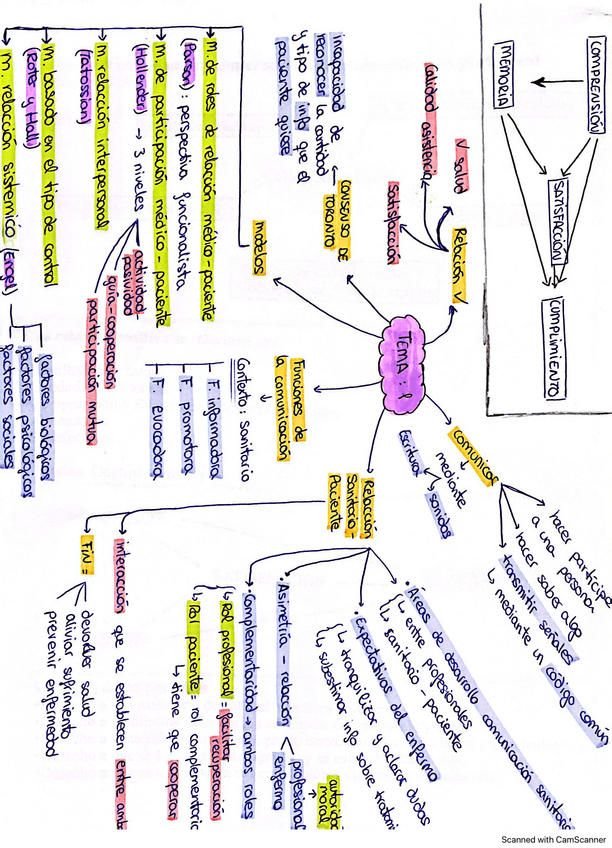 TEMA: 1
COMPRENSIÓN
MEMORIA
SATISFACCIÓN
CUMPLIMIENTO
Relación V
V salud
Calidad asistencia
Satisfacción
CONSENSO DE
TORONTO
incapacidad de
reconocer la cantidad
y tipo de info que el
paciente quiere
modelos
M. de roles de relación médico-paciente
(Parson): perspectiva funcionalista
M. de participación médico-paciente
(Hollender) → 3 niveles
actividad-
pasividad
guía-cooperación
participación mutua
M. relación interpersonal
(Tatossian)
M. basado en el tipo de control
(Roter y Hall)
M. relación sistémico (Engel)
factores biológicos
factores psicológicos
factores sociales
Funciones de
la comunicación
Contexto: sanitario
F. informadora
F. promotora
F. Evocadora
comunicar
mediante
sonidos
Escritura
hacer partícipe
a una persona
hacer saber algo
transmitir señales
↳ mediante un código común
Relación
Sanitario-
Paciente
· Áreas de desarrollo comunicación sanitaria
↳ entre profesionales
↳ sanitario - paciente
· Expectativas del enfermo
↳ tranquilizar y aclarar dudas
↳ subestimar info sobre
· Asimetría - relación
profesional
enfermo
moral
· Complementariedad → ambos roles
↳ Rol profesional = facilitar
recuperación
↳ Rol paciente = rol complementario
↳ tiene que cooperar
interacción que se establecen entre
FIN =
devolver salud
aliviar sufrimiento
prevenir enfermedad
Scanned with CamScanner